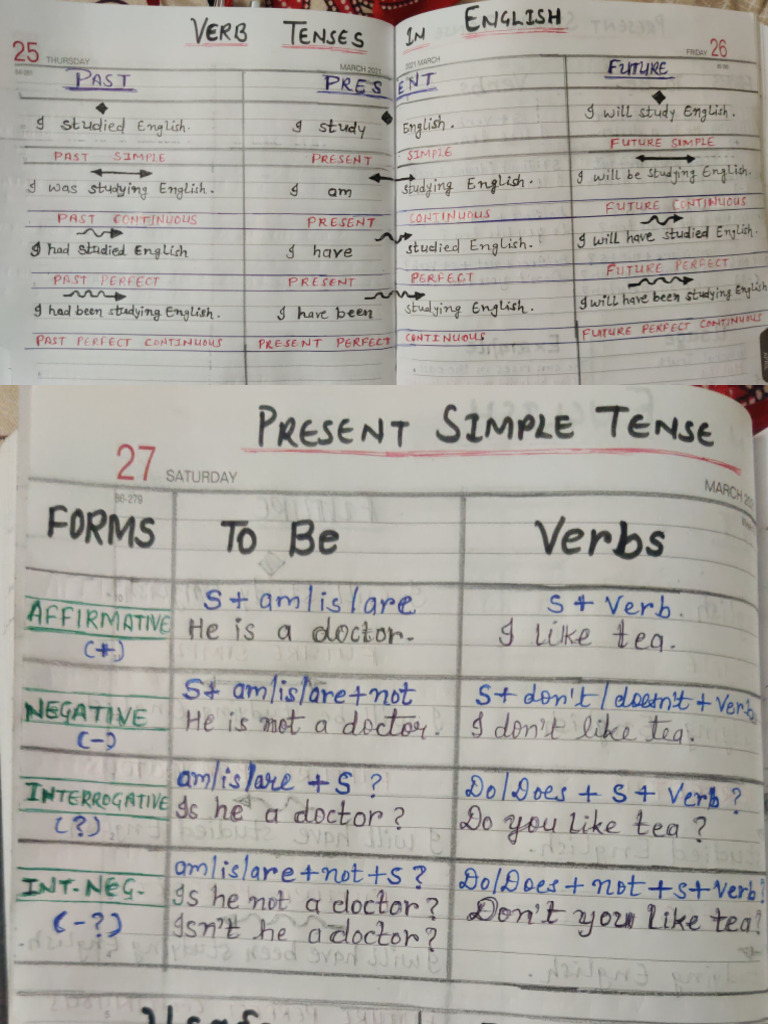 VERB TENSES IN ENGLISH
25 THURSDAY MARCH 2021
2021 MARCH FRIDAY 26
PAST PRESENT FUTURE
I studied English. I study English. I will study English.
PAST SIMPLE PRESENT SIMPLE FUTURE SIMPLE
I was studying English. I am studying English. I will be studying English.
PAST CONTINUOUS PRESENT CONTINUOUS FUTURE CONTINUOUS
I had studied English I have studied English. I will have studied English.
PAST PERFECT PRESENT PERFECT FUTURE PERFECT
I had been studying English. I have been studying English. I will have been studying English
PAST PERFECT CONTINUOUS PRESENT PERFECT CONTINUOUS FUTURE PERFECT CONTINUOUS
PRESENT SIMPLE TENSE
27 SATURDAY MARCH
86-279
FORMS To Be Verbs
AFFIRMATIVE S + am/is/are S + Verb.
(+) He is a doctor. I like tea.
NEGATIVE S+ am/is/are+not S+ don't/doesn't + Verb
(-) He is not a doctor. I don't like tea.
INTERROGATIVE am/is/are + S ? Do/Does + S + Verb ?
(?) Is he a doctor ? Do you like tea ?
INT.-NEG. am/is/are+not+S ? Do/Does + not + S + Verb?
(-?) Is he not a doctor? Don't you like tea?
Isn't he a doctor?